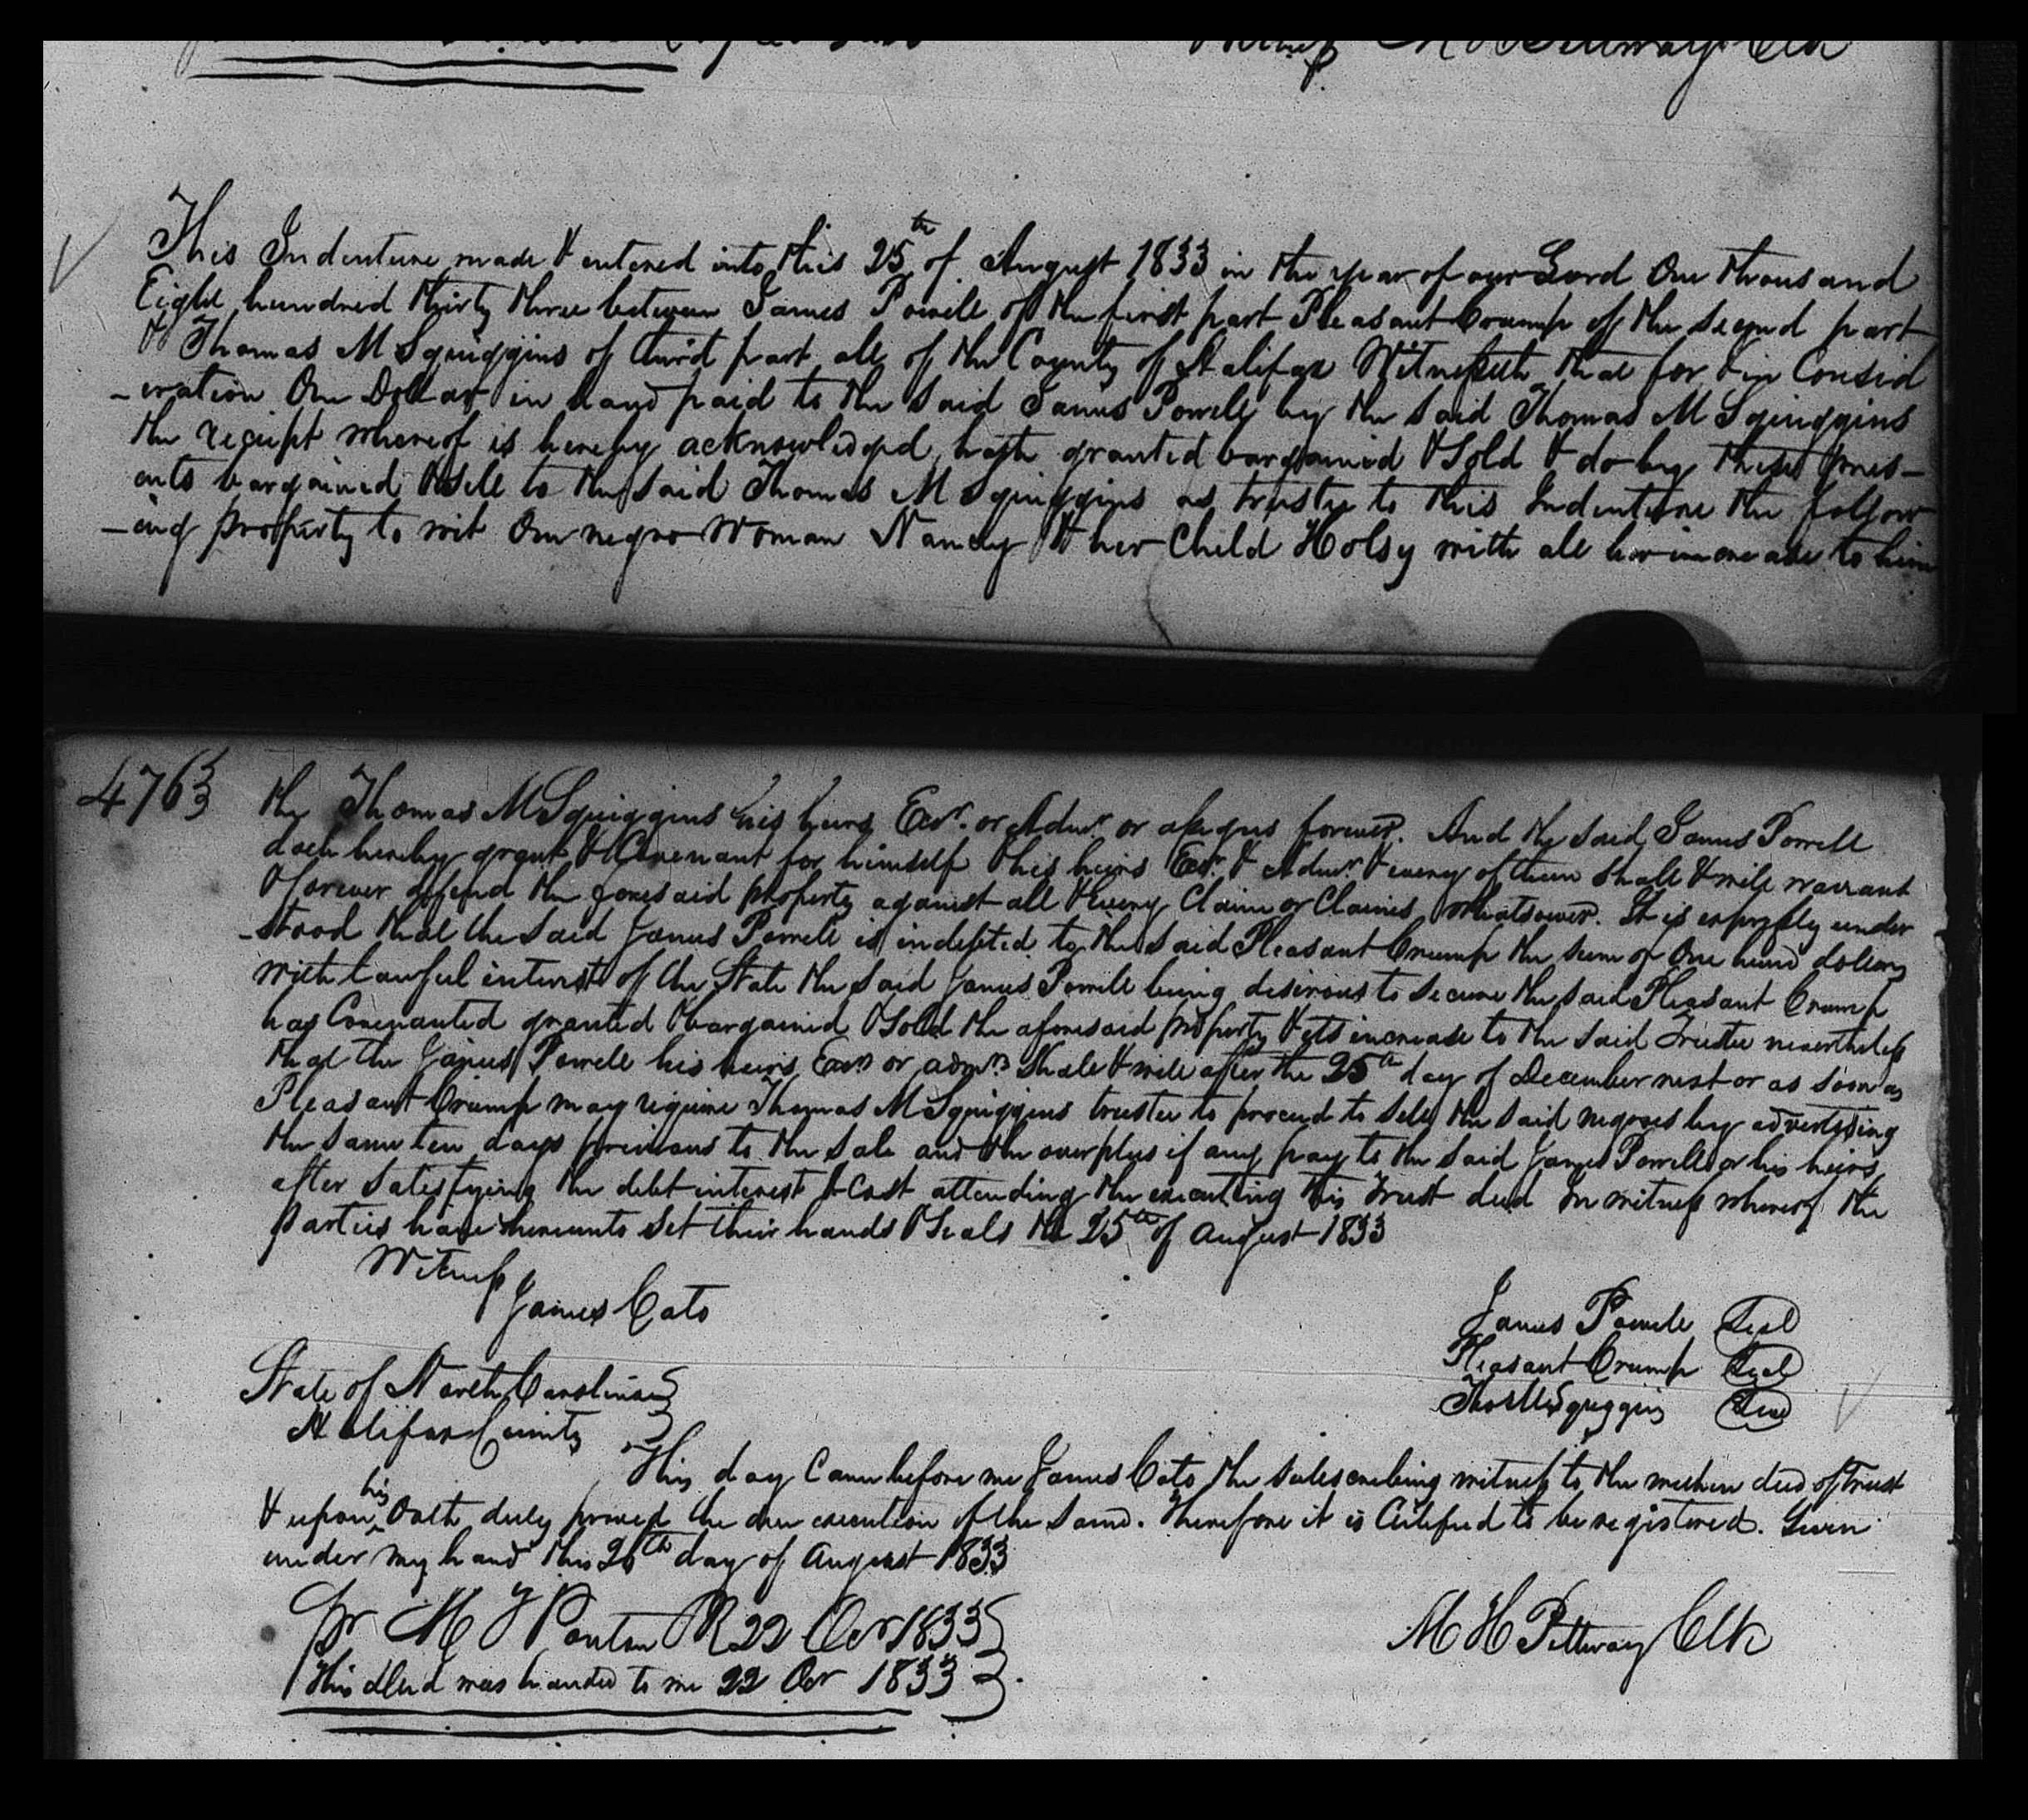 Pettway Clk
This Indenture made & entered into this 25th of August 1833 in the year of our Lord One thousand
Eight hundred thirty three between James Powell of the first part Pleasant Crump of the second part
& Thomas M Squiggins of third part all of the County of Halifax Witnesseth that for & in Consid
-eration One Dollar in hand paid to the said James Powell by the said Thomas M Squiggins
the receipt whereof is hereby acknowledged hath granted bargained & Sold & do by these pres-
ents bargained & Sell to the said Thomas M Squiggins as trustee to this Indenture the follow
-ing property to wit One negro Woman Nancy & her Child Holsy with all her increase to him
4763
the Thomas M Squiggins his heirs Exr. or Admr. or assigns forever. And the said James Powell
doth hereby grant & Covenant for himself & his heirs Exr. & Admr. & every of them shall & will warrant
& forever defend the foresaid property against all & every Claim or Claims Whatsoever. It is expressly under
-stood that the said James Powell is indebted to the said Pleasant Crump the sum of One hund dollars
with lawful interest of the State the said James Powell being desirous to secure the said Pleasant Crump
has Covenanted granted & bargained & Sold the aforesaid property & its increase to the said Trustee nevertheless
that the James Powell his heirs Exrs or admrs Shall & will after the 25th day of December next or as soon as
Pleasant Crump may require Thomas M Squiggins trustee to proceed to sell the said negroes by advertising
the same ten days previous to the sale and the overplus if any pay to the said James Powell or his heirs
after satisfying the debt interest & Cost attending the executing this trust deed In witness whereof the
parties have hereunto set their hands & Seals the 25th of August 1833
Witness
James Cato
James Powell Seal
Pleasant Crump Seal
Thos M Squiggins Seal
State of North Carolina
Halifax County
This day Came before me James Cato the subscribing witness to the within deed of Trust
& upon his Oath duly proved the due execution of the same. Therefore it is Certified to be registered. Given
under my hand this 26th day of August 1833
M H Pettway Clk
pr M J Ponton PR 22 Oct 1833
This deed was handed to me 22 Oct 1833